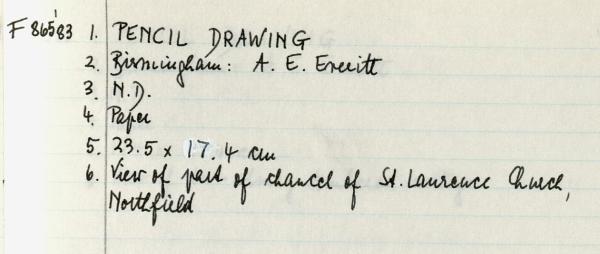 F 86583 1. PENCIL DRAWING
2. Birmingham: A. E. Everitt
3. N.D.
4. Paper
5. 23.5 x 17.4 cm
6. View of part of chancel of St. Laurence Church,
Northfield